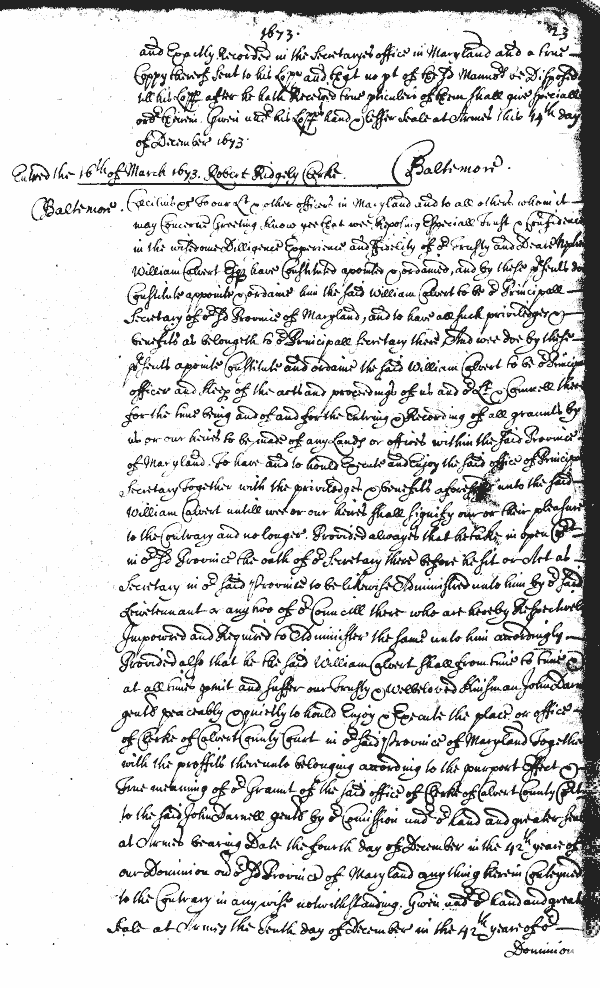 1673. 23
and Exactly Recorded in the Secretaryes office in Maryland and a true
Coppy thereof sent to his Lopp and that no pt of the sd Mannors be Disposed
till his Lopp after he hath Received true pticulers of them shall give speciall
order therein. Given undr his Lopps hand & lesser seale at Armes this 4th day
of December 1673
Baltemore.
Entred the 16th of March 1673. Robert Ridgely Clerke.
Baltemore. Cæcilius &c To our Lt & other officrs in Maryland and to all others whom it
may Concerne Greeting. know yee that wee Reposing Especiall Trust & Confidence
in the wisedome Dilligence Experience and Fidelity of or Trusty and Deare Nephew
William Calvert Esqr have Constituted apointed & ordained, and by these psents doe
Constitute appointe & ordaine him the said William Calvert to be or Principall
Secretary of or sd Province of Maryland, and to have all such priviledges &
benefits as belongeth to or Principall Secretary there, And wee doe by these
psents apointe Constitute and ordaine the said William Calvert to be or Principall
officer and keepr of the acts and proceedings of us and or Lt & Councell there
for the time being and of and for the Entring & Recording of all graunts by
us or our heires to be made of any Lands or offices within the said Province
of Maryland. To have and to hould Execute and Enjoy the said office of Principall
Secretary Together with the priviledges & benefits aforesd unto the said
William Calvert untill wee or our heires shall signify our or their pleasure
to the Contrary and no longer. Provided alwayes that he take in open Court
in or sd Province the oath of or Secretary there before he sit or Act as
Secretary in or said Province to be likewise Administred unto him by or said
Leivetennant or any two of or Councell there who are hereby Respectively
Impowred and Required to Administer the same unto him accordingly
Provided also that he the said William Calvert shall from time to time &
at all times pmit and suffer our Trusty & Welbeloved Kinsman John Darnell
gentl peaceably & quietly to hould Enjoy & Execute the place or office
of Clerke of Calvert County Court in or said Province of Maryland Together
with the proffits thereunto belonging according to the purport Effect &
True meaning of or Graunt of the said office of Clerke of Calvert County Court
to the said John Darnell gentl by or Comission undr or hand and greater seale
at Armes bearing Date the fourth day of December in the 42th yeare of
our Dominion ovr or sd Province of Maryland any thing herein Conteyned
to the Contrary in any wise notwithstanding. Given undr or hand and great
seale at Armes the Tenth day of December in the 42th yeare of or
Dominion